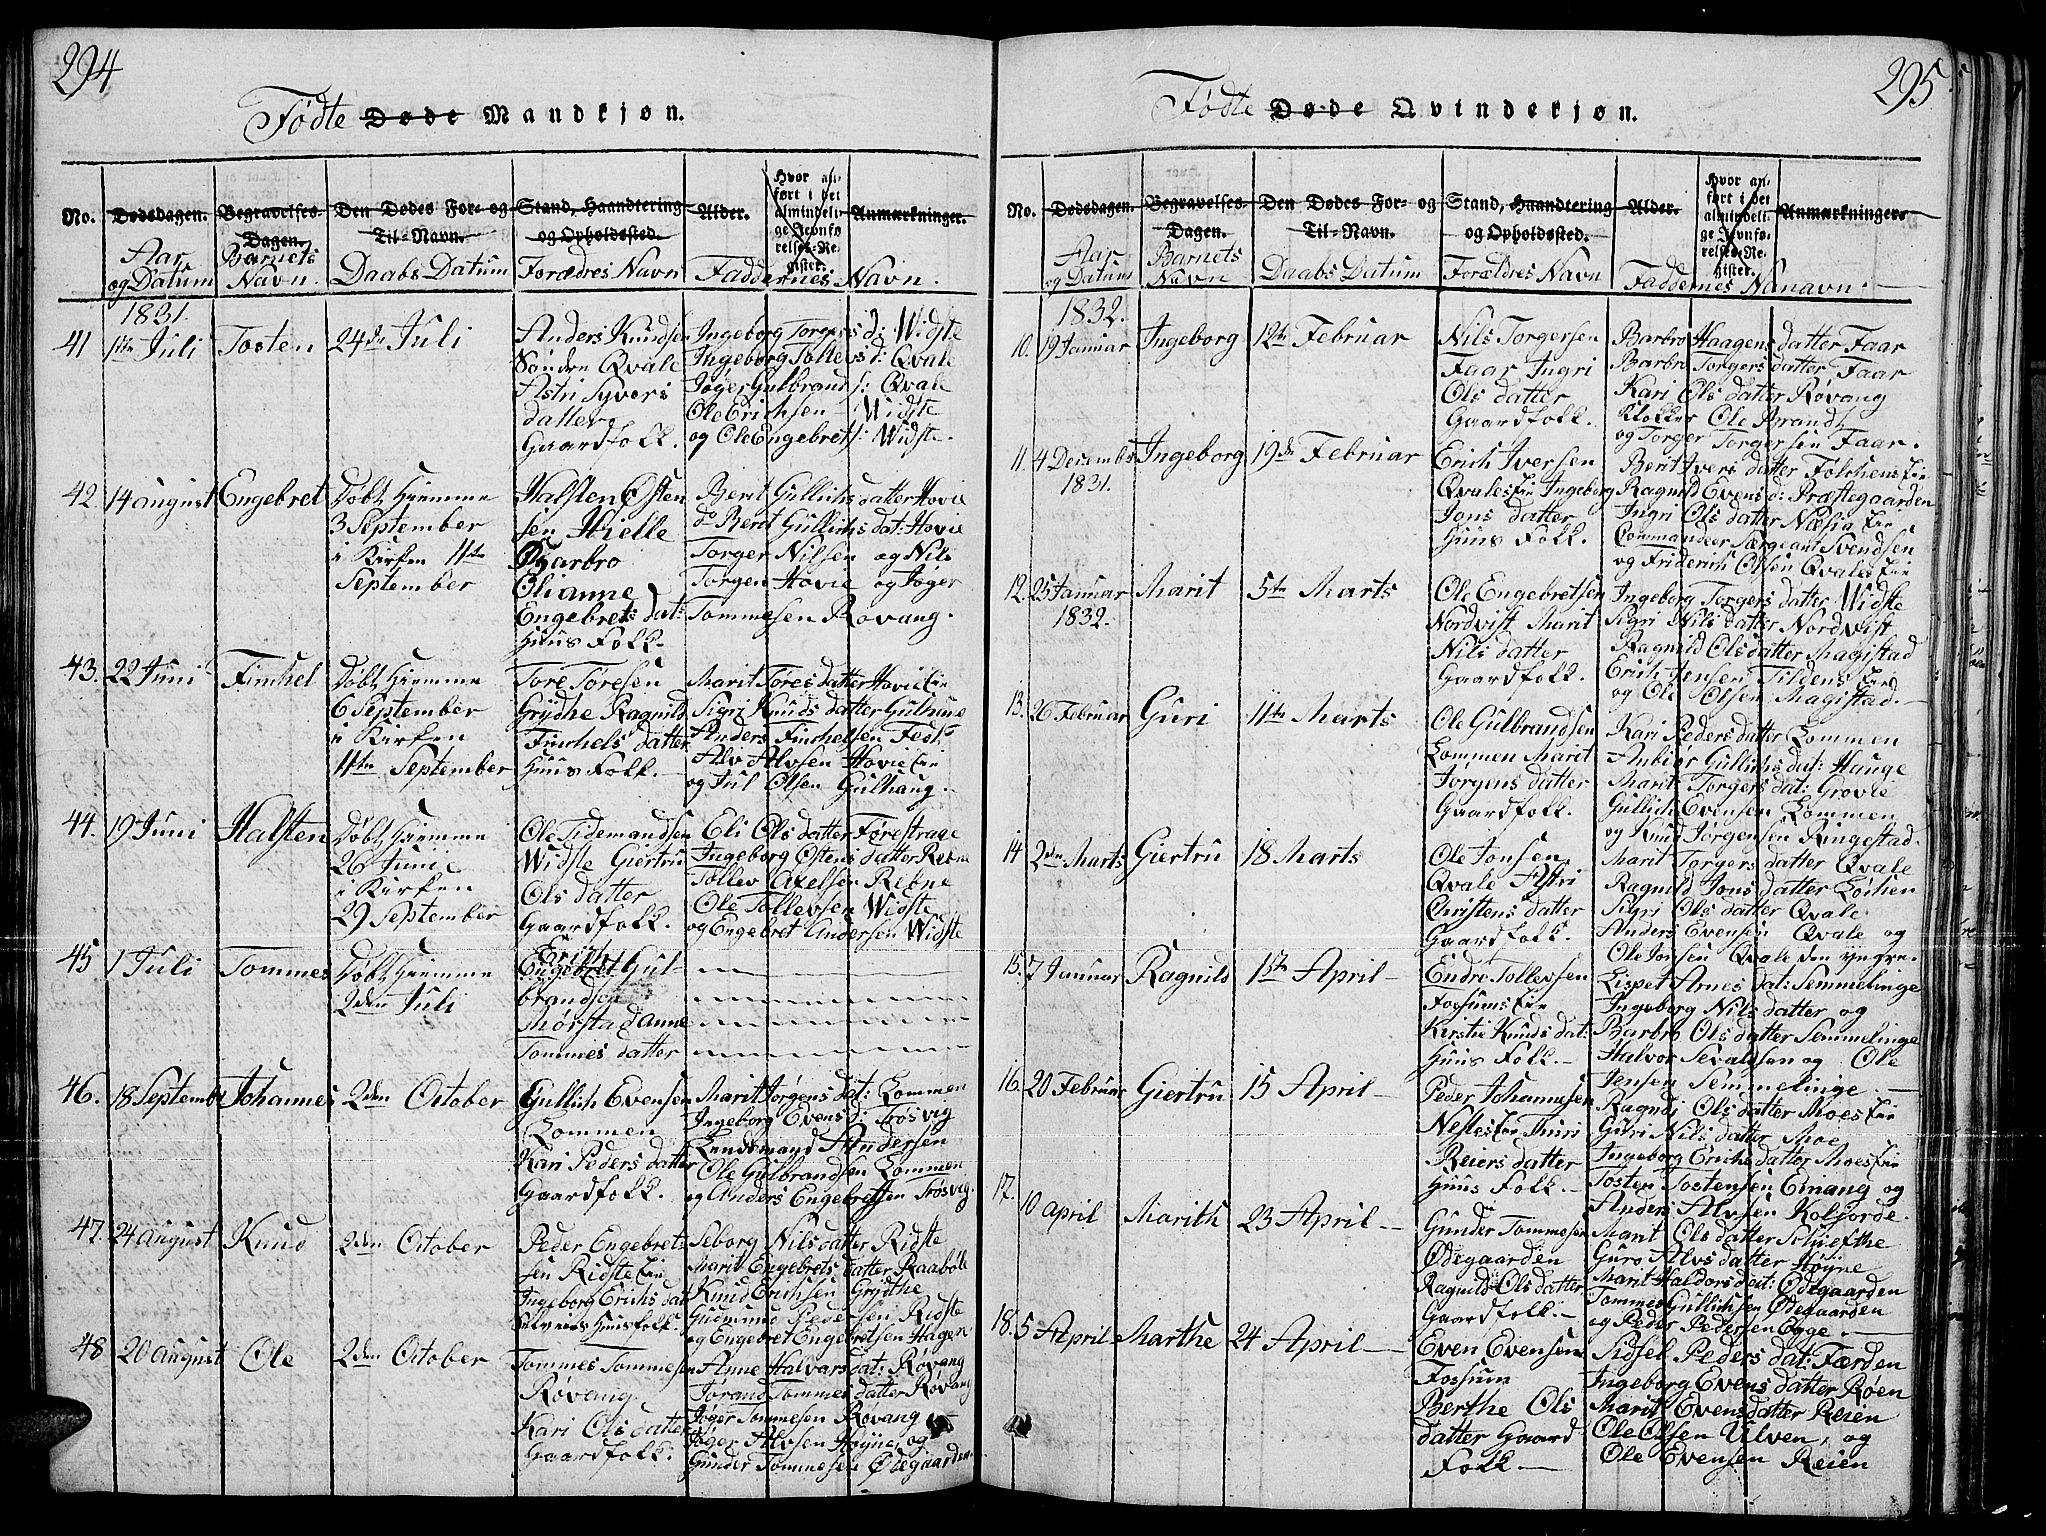 294
Fødte Døde Mandkjøn.
No. Dødsdagen. Begravelses-Dagen. Den Dødes For- og Til-Navn. Stand, Haandtering og Opholdssted. Alder. Hvor anført i det almindelige Jevnførelses-Register. Anmærkninger.
Aar og Datum Barnets Navn. Daabs Datum Forældres Navn Faddernes Navn.
1831.
41 1ste Juli Tosten 24de Juli
Anders Knudsen
Søndre Qvale
Astri Syvers
datter
Gaardfolk.
Ingeborg Torgers d: Widste
Ingeborg Tollevs d: Qvale
Jøger Gulbrands: Qvale
Ole Erichsen Widste
og Ole Engebrets: Widste.
42 14 august Engebret
Døbt Hiemme
3 September
i Kirken 11te
September
Halsten Østen
sen Hielle
Barbro
Olianne
Engebrets dat:
Huus Folk.
Berit Gullichs datter Hovie
do Berit Gullichs dat: Hovie
Torger Nilsen og Nils
Torgen Hovie og Jøger
Tommesen Røvang.
43. 22 Juni Finchel
Døbt Hiemme
6 September
i Kirken
11te September
Tore Toresen
Grydhe Ragnild
Finchels datter
Huus Folk.
Marit Tores datter Hovie Eie
Sigri Knuds datter Gulhuue
Anders Finchelsen Fedh
Alv Alvsen Hovie Eie
og Jul Olsen Gulhaug.
44. 19 Juni Halsten
Døbt Hiemme
26 Junie
i Kirken
29 September
Ole Tidemandsen
Widste Giertru
Ols datter
Gaardfolk.
Eli Ols datter Førestrage
Ingeborg Østens datter Rebne
Tollev Axelsen Rebne
Ole Tollevsen Widste
og Engebret Andersen Widste
45 1 Juli Tommes
Døbt Hiemme
2den Juli
Erich
Engebret Gul-
brandsen
Mørstad Anne
Tommes datter
46. 18 Septembr Johannes 2den October
Gullich Evensen
Lommen
Kari Peders datter
Gaardfolk.
Marit Jørgens dat: Lommen
Ingeborg Evens d: Trøsvig
Lendsmand Andersen
Ole Gulbrandsen Lommen
og Anders Engebretsen Trøsvig.
47. 24 august Knud 2den October
Peder Engebret-
sen Ridste Eie
Ingeborg Erichs dat
Huusfolk.
Seborg Nils datter Ridste
Marit Engebrets datter Raabøle
Knud Erichsen Grydthe
Gudmund Pedersen Ridste
og Engebret Engebretsen Hagen
48 20 august Ole 2den October
Tommes Tommesen
Røvang
Kari Ols datter
Gaardfolk.
Anne Halvars dat: Røvang
Jørand Tommes datter Røvang
Jøger Tommesen Røvang
Jøger Alvsen Høyne, og
Gunder Tommesen Ødegaarden
295
Fødte Døde Qvindekjøn.
No. Dødsdagen. Begravelses Dagen. Den Dødes For- og Til-Navn. Stand, Haandtering og Opholdssted. Alder. Hvor anført i det almindelige Jevnførelses-Register. Anmærkninger.
Aar og Datum Barnets Navn Daabs Datum Forældres Navn Faddernes Nanavn.
1832.
10. 19 Januar Ingeborg 12te Februar
Nils Torgersen
Faar Ingri
Ols datter
Gaardfolk.
Barbro Haagens datter Faar
Barbro Torgers datter Faar
Kari Ols datter Røvang
Klokker Ole Brandt
og Torger Torgersen Faar.
11. 4 Decembr 1831. Ingeborg 19de Februar
Erich Iversen
Qvales Eie Ingeborg
Jons datter
Huus Folk.
Berit Ivers datter Folchens Eie
Ragnild Evens d: Præstegaarden
Ingri Ols datter Næsja Eie
Commandeer Særgeant Svendsen
og Friderich Olsen Qvales Eie
12. 25 Januar 1832. Marit 5te Marts
Ole Engebretsen
Nordvist Marit
Nils datter
Gaardfolk.
Ingeborg Torgers datter Widste
Sigri Nils datter Nordvist
Ragnild Ols datter Magistad
Erich Jensen Tildens Eie
og Ole Olsen Magistad.
13. 26 Februar Guri 11te Marts
Ole Gulbrandsen
Lommen Marit
Jørgens datter
Gaardfolk.
Kari Peders datter Lommen
Anbiør Gullichs dat: Hauge
Marit Torgers dat: Grovie
Gullich Evensen Lommen
og Knud Jørgensen Ringestad.
14 2den Marts Giertru 18 Marts
Ole Jonsen
Qvale Astri
Christens datter
Gaardfolk.
Marit Torgers datter Qvale
Ragnild Jons datter Lørhen
Sigri Ols datter Qvale
Anders Evensen Qvale og
Ole Jonsen Qvale den yngre.
15. 7 Januar Ragnild 1ste April
Endre Tollevsen
Fossums Eie
Kirstie Knuds dat:
Huus Folk.
Lispet Arnes dat: Semmelinge
Ingeborg Nils datter og
Barbro Ols datter Semmelinge
Halvor Sevaldsen og Ole
Jensen Semmelinge.
16. 20 Februar Giertru 15 April
Peder Johannesen
Nestes Eie Thuri
Reiers datter
Huus Folk.
Ragndi Ols datter Moes Eie
Guri Nils datter Moe
Ingeborg Erichs datter Moes Eie
Tosten Tostensen Enang og
Anders Alvsen Koljorde.
17. 10 april Marith 23 April
Gunder Tommesen
Ødegaarden
Ragnild Ols datter
Gaardfolk.
Marit Ols datter
Guro Alvs datter Høyne
Marit Haldors dat: Ødegaarden
Tommes Gullichsen Ødegaarden
og Peder Pedersen Egge.
18. 5 April Marthe 24 April
Even Evensen
Fossum
Berthe Ols
datter Gaard
Folk
Sidsel Peders dat: Færden
Ingeborg Evens datter Røen
Marit Evens datter Reien
Ole Olsen Ulven, og
Ole Evensen Reien